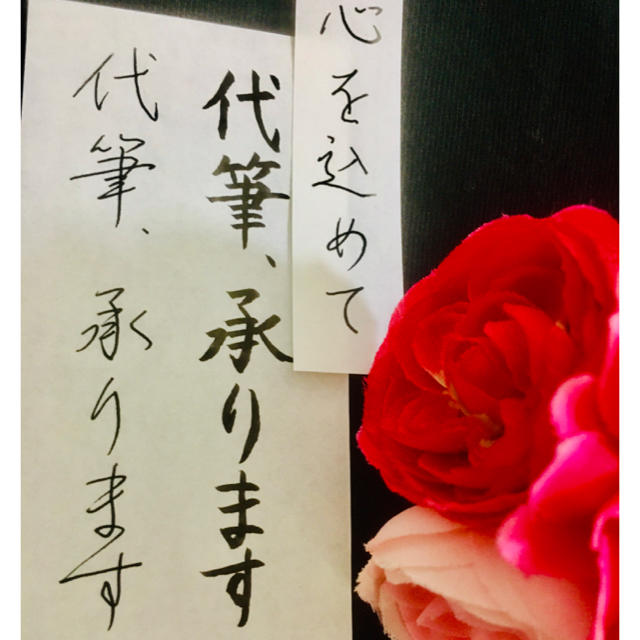 心を込めて
代筆、承ります
代筆、承ります